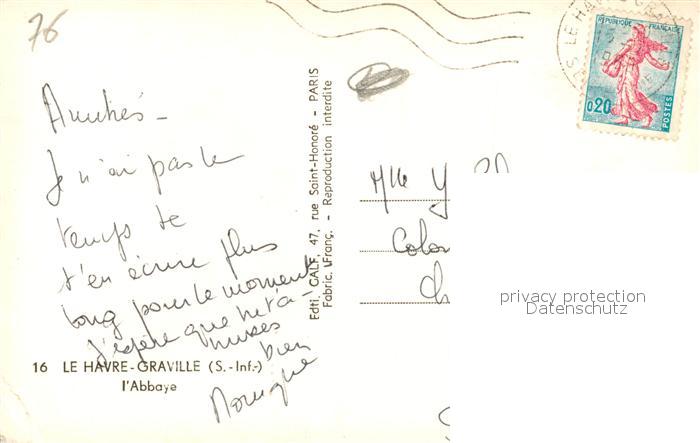 76
Amitiés -
Je n'ai pas le
temps de
t'en écrire plus
long pour le moment
J'espère que tu t'a-
muses
bien
Monique
16 LE HAVRE-GRAVILLE (S.-Inf.)
l'Abbaye
Edti. GALF, 47, rue Saint-Honoré - PARIS
Fabric. Franç. - Reproduction interdite
LE HAVRE GRA
REPUBLIQUE FRANÇAISE
0,20
POSTES
Mlle Y
Colo
Ch
privacy protection
Datenschutz